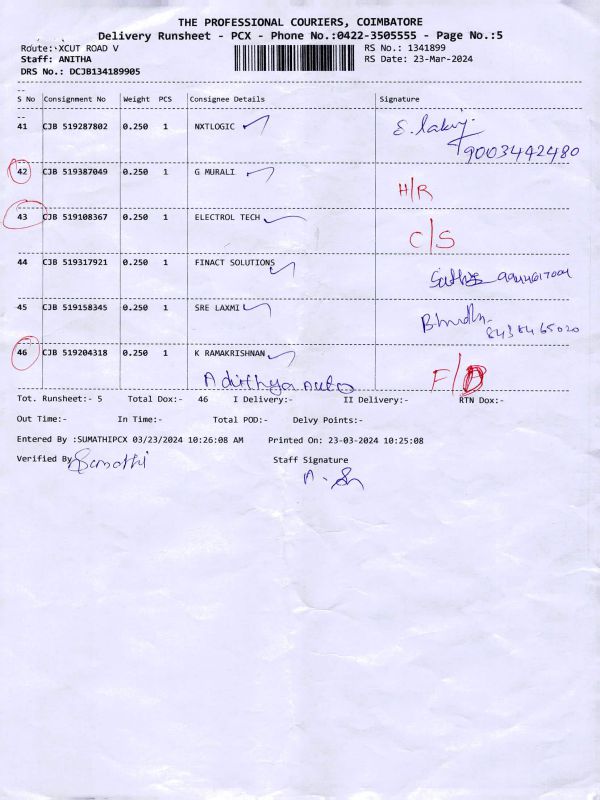 THE PROFESSIONAL COURIERS, COIMBATORE
Delivery Runsheet - PCX - Phone No.:0422-3505555 - Page No.:5
Route: XCUT ROAD V
RS No.: 1341899
Staff: ANITHA
RS Date: 23-Mar-2024
DRS No.: DCJB134189905
S No Consignment No Weight PCS Consignee Details Signature
41 CJB 519287802 0.250 1 NXTLOGIC
9003442480
42 CJB 519387049 0.250 1 G MURALI H/R
43 CJB 519108367 0.250 1 ELECTROL TECH C/S
44 CJB 519317921 0.250 1 FINACT SOLUTIONS
45 CJB 519158345 0.250 1 SRE LAXMI
46 CJB 519204318 0.250 1 K RAMAKRISHNAN
Adithya Auto F/D
Tot. Runsheet:- 5 Total Dox:- 46 I Delivery:- II Delivery:- RTN Dox:-
Out Time:- In Time:- Total POD:- Delvy Points:-
Entered By :SUMATHIPCX 03/23/2024 10:26:08 AM Printed On: 23-03-2024 10:25:08
Verified By Sumathi Staff Signature